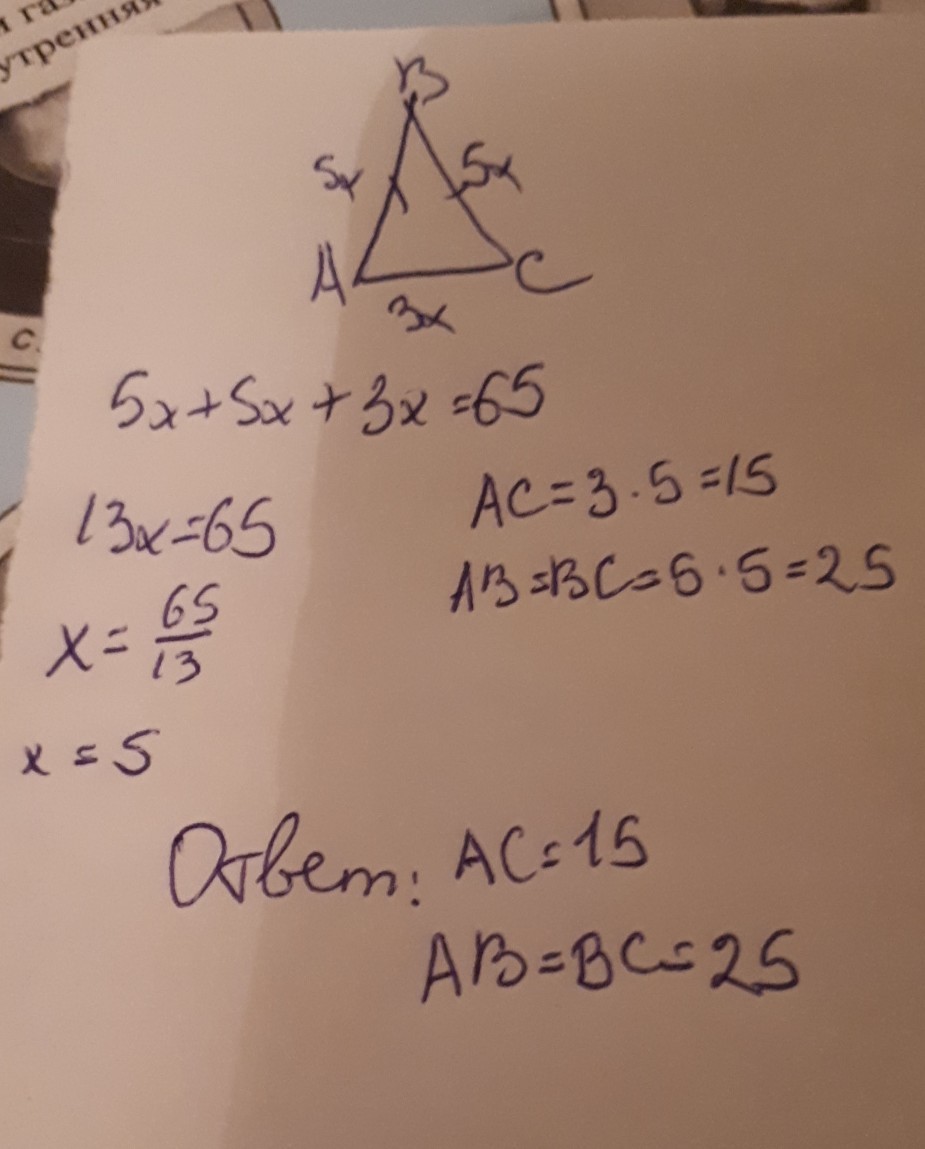 утренняя
с.
B
5x 5x
A C
3x
5x+5x+3x=65
13x=65
x=65/13
x=5
AC=3·5=15
AB=BC=5·5=25
Ответ: AC=15
AB=BC=25